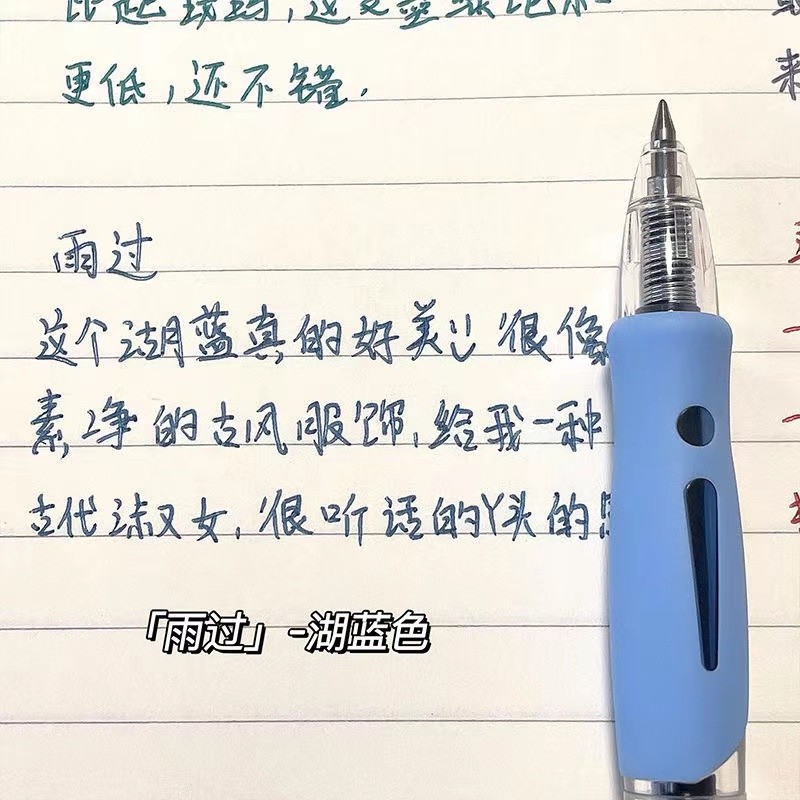 更低，还不错.
雨过
这个湖蓝真的好美 很像
素净的古风服饰,给我一种
古代淑女,很听话的丫头的
「雨过」-湖蓝色